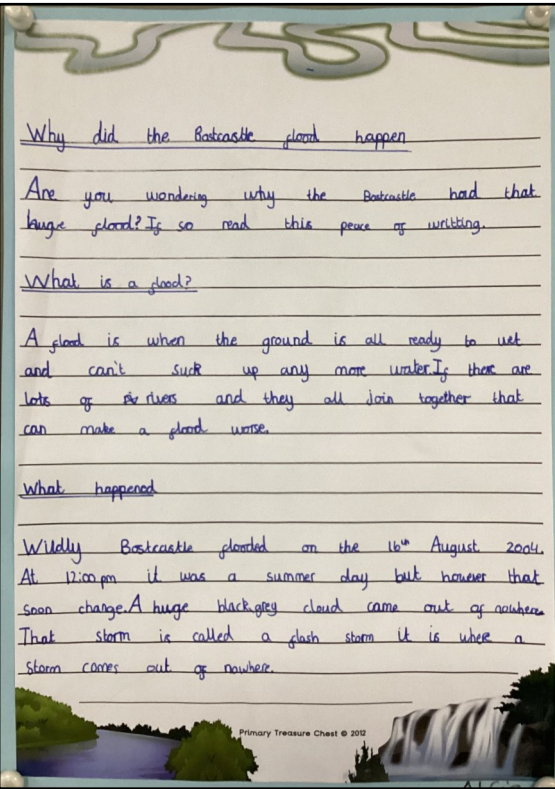 Why did the Bostcastle flood happen
Are you wondering why the Bostcastle had that
huge flood? If so read this peace of writting.
What is a flood?
A flood is when the ground is all ready to wet
and can't suck up any more water. If there are
lots of rivers and they all join together that
can make a flood worse.
What happened
Wildly Bostcastle flooded on the 16th August 2004.
At 12:00 pm it was a summer day but however that
soon change. A huge black grey cloud came out of nowhere.
That storm is called a flash storm it is where a
storm comes out of nowhere.
Primary Treasure Chest © 2012